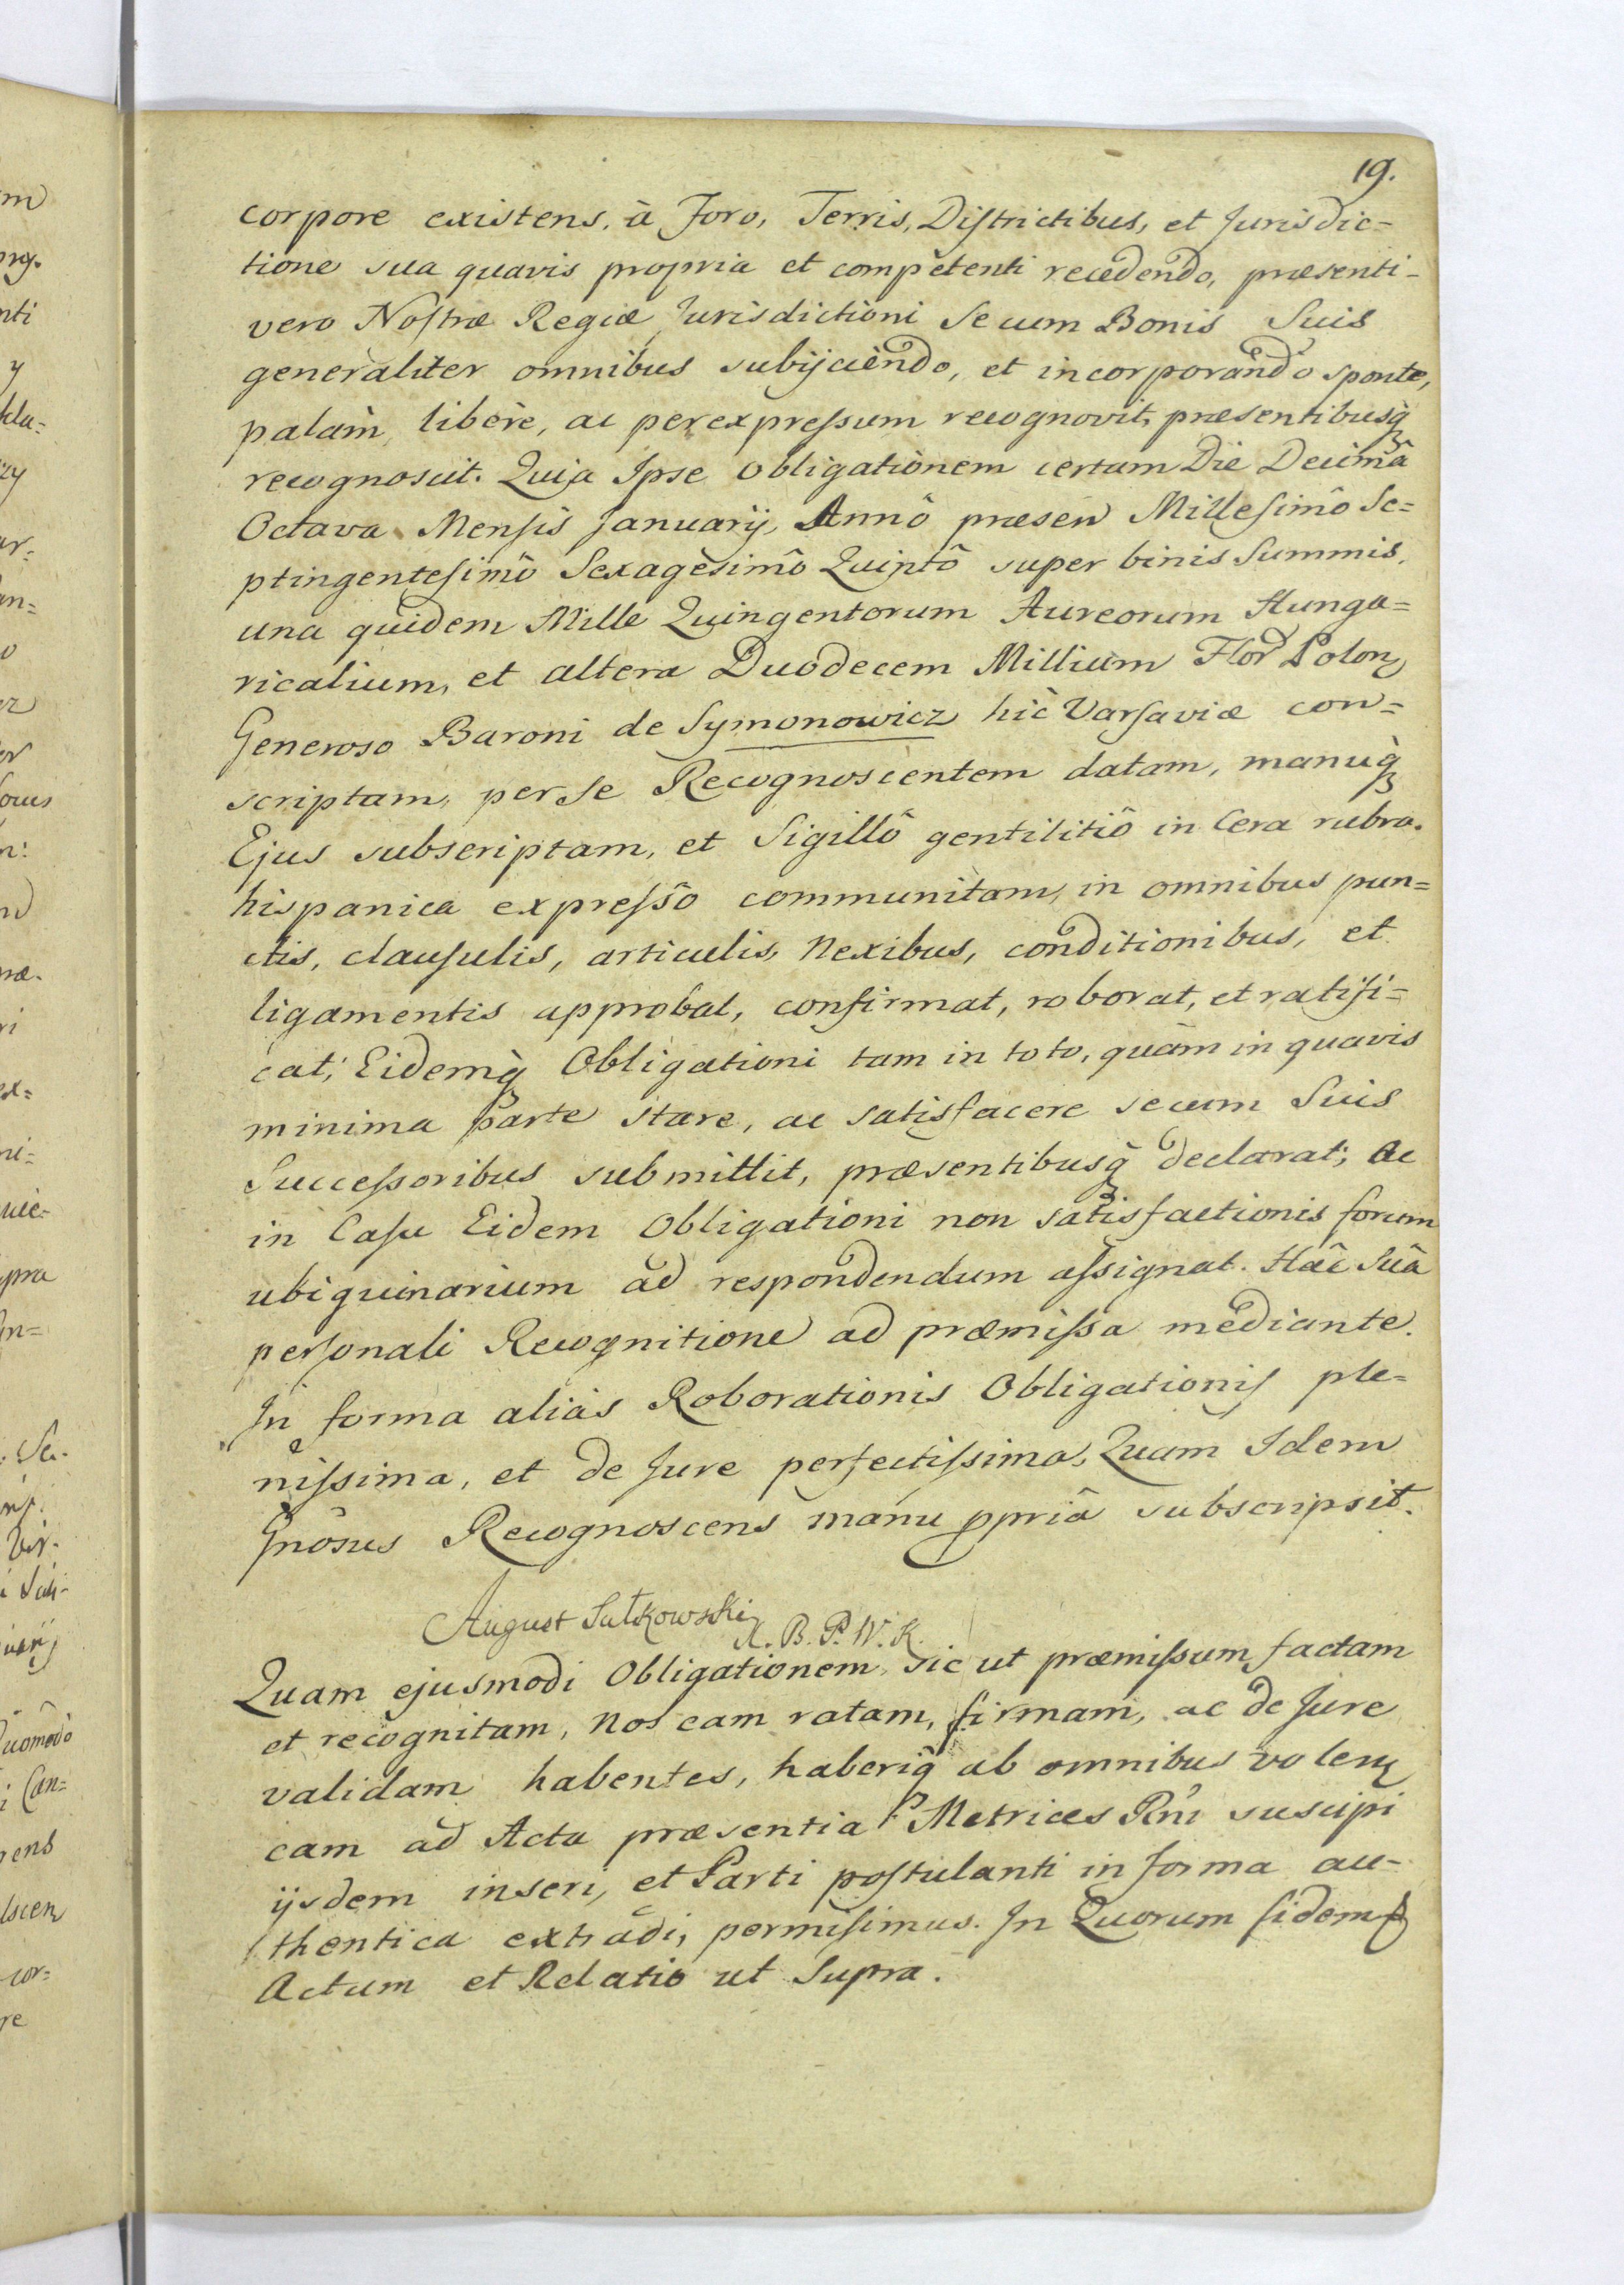 19.
corpore existens, à Foro, Terris, Districtibus, et Jurisdic=
tione sua quavis propria et competenti recedendo, præsenti-
vero Nostræ Regiæ Jurisdictioni se cum Bonis Suis
generaliter omnibus subijciendo, et incorporando sponte,
palàm, liberè, ac per expressum recognovit, præsentibusq̀
recognoscit. Quia Ipse Obligationem certam Die Decimâ
Octava Mensis Januarij, Annô præsen Millesimô Se=
ptingentesimô Sexagesimô Quintô super binis Summis,
una quidem Mille Quingentorum Aureorum Hunga=
ricalium, et altera Duodecem Millium Flor Polon
Generoso Baroni de Symonowicz hìc Varsaviæ con=
scriptam, per se Recognoscentem datam, manuq̀
Ejus subscriptam, et Sigillô gentilitiô in Cera rubra
hispanica expressô communitam, in omnibus pun=
ctis, clausulis, articulis, Nexibus, conditionibus, et
ligamentis approbat, confirmat, roborat, et ratifi=
cat; Eidemq̀ Obligationi tam in toto, quàm in quavis
minima parte stare, ac satisfacere se cum Suis
Successoribus submittit, præsentibusq̀ declarat; Ac
in Casu Eidem Obligationi non satisfactionis forum
ubiquinarium ad respondendum assignat. Hâc Suâ
personali Recognitione ad præmissa mediante.
In forma aliàs Roborationis Obligationis ple=
nissima, et de Jure perfectissima, Quam Idem
Gnôsus Recognoscens manu ppriâ subscripsit.
August Sułkowski
X. B. P. W. K.
Quam ejusmodi Obligationem, sic ut præmissum factam
et recognitam, Nos eam ratam, firmam, ac de Jure
validam habentes, haberiq̀ ab omnibus volen
eam ad Acta præsentia Metrices Rni suscipi
ijsdem inseri, et Parti postulanti in forma au-
thentica extradi, permisimus. In Quorum fidem
Actum et Relatio ut Supra.